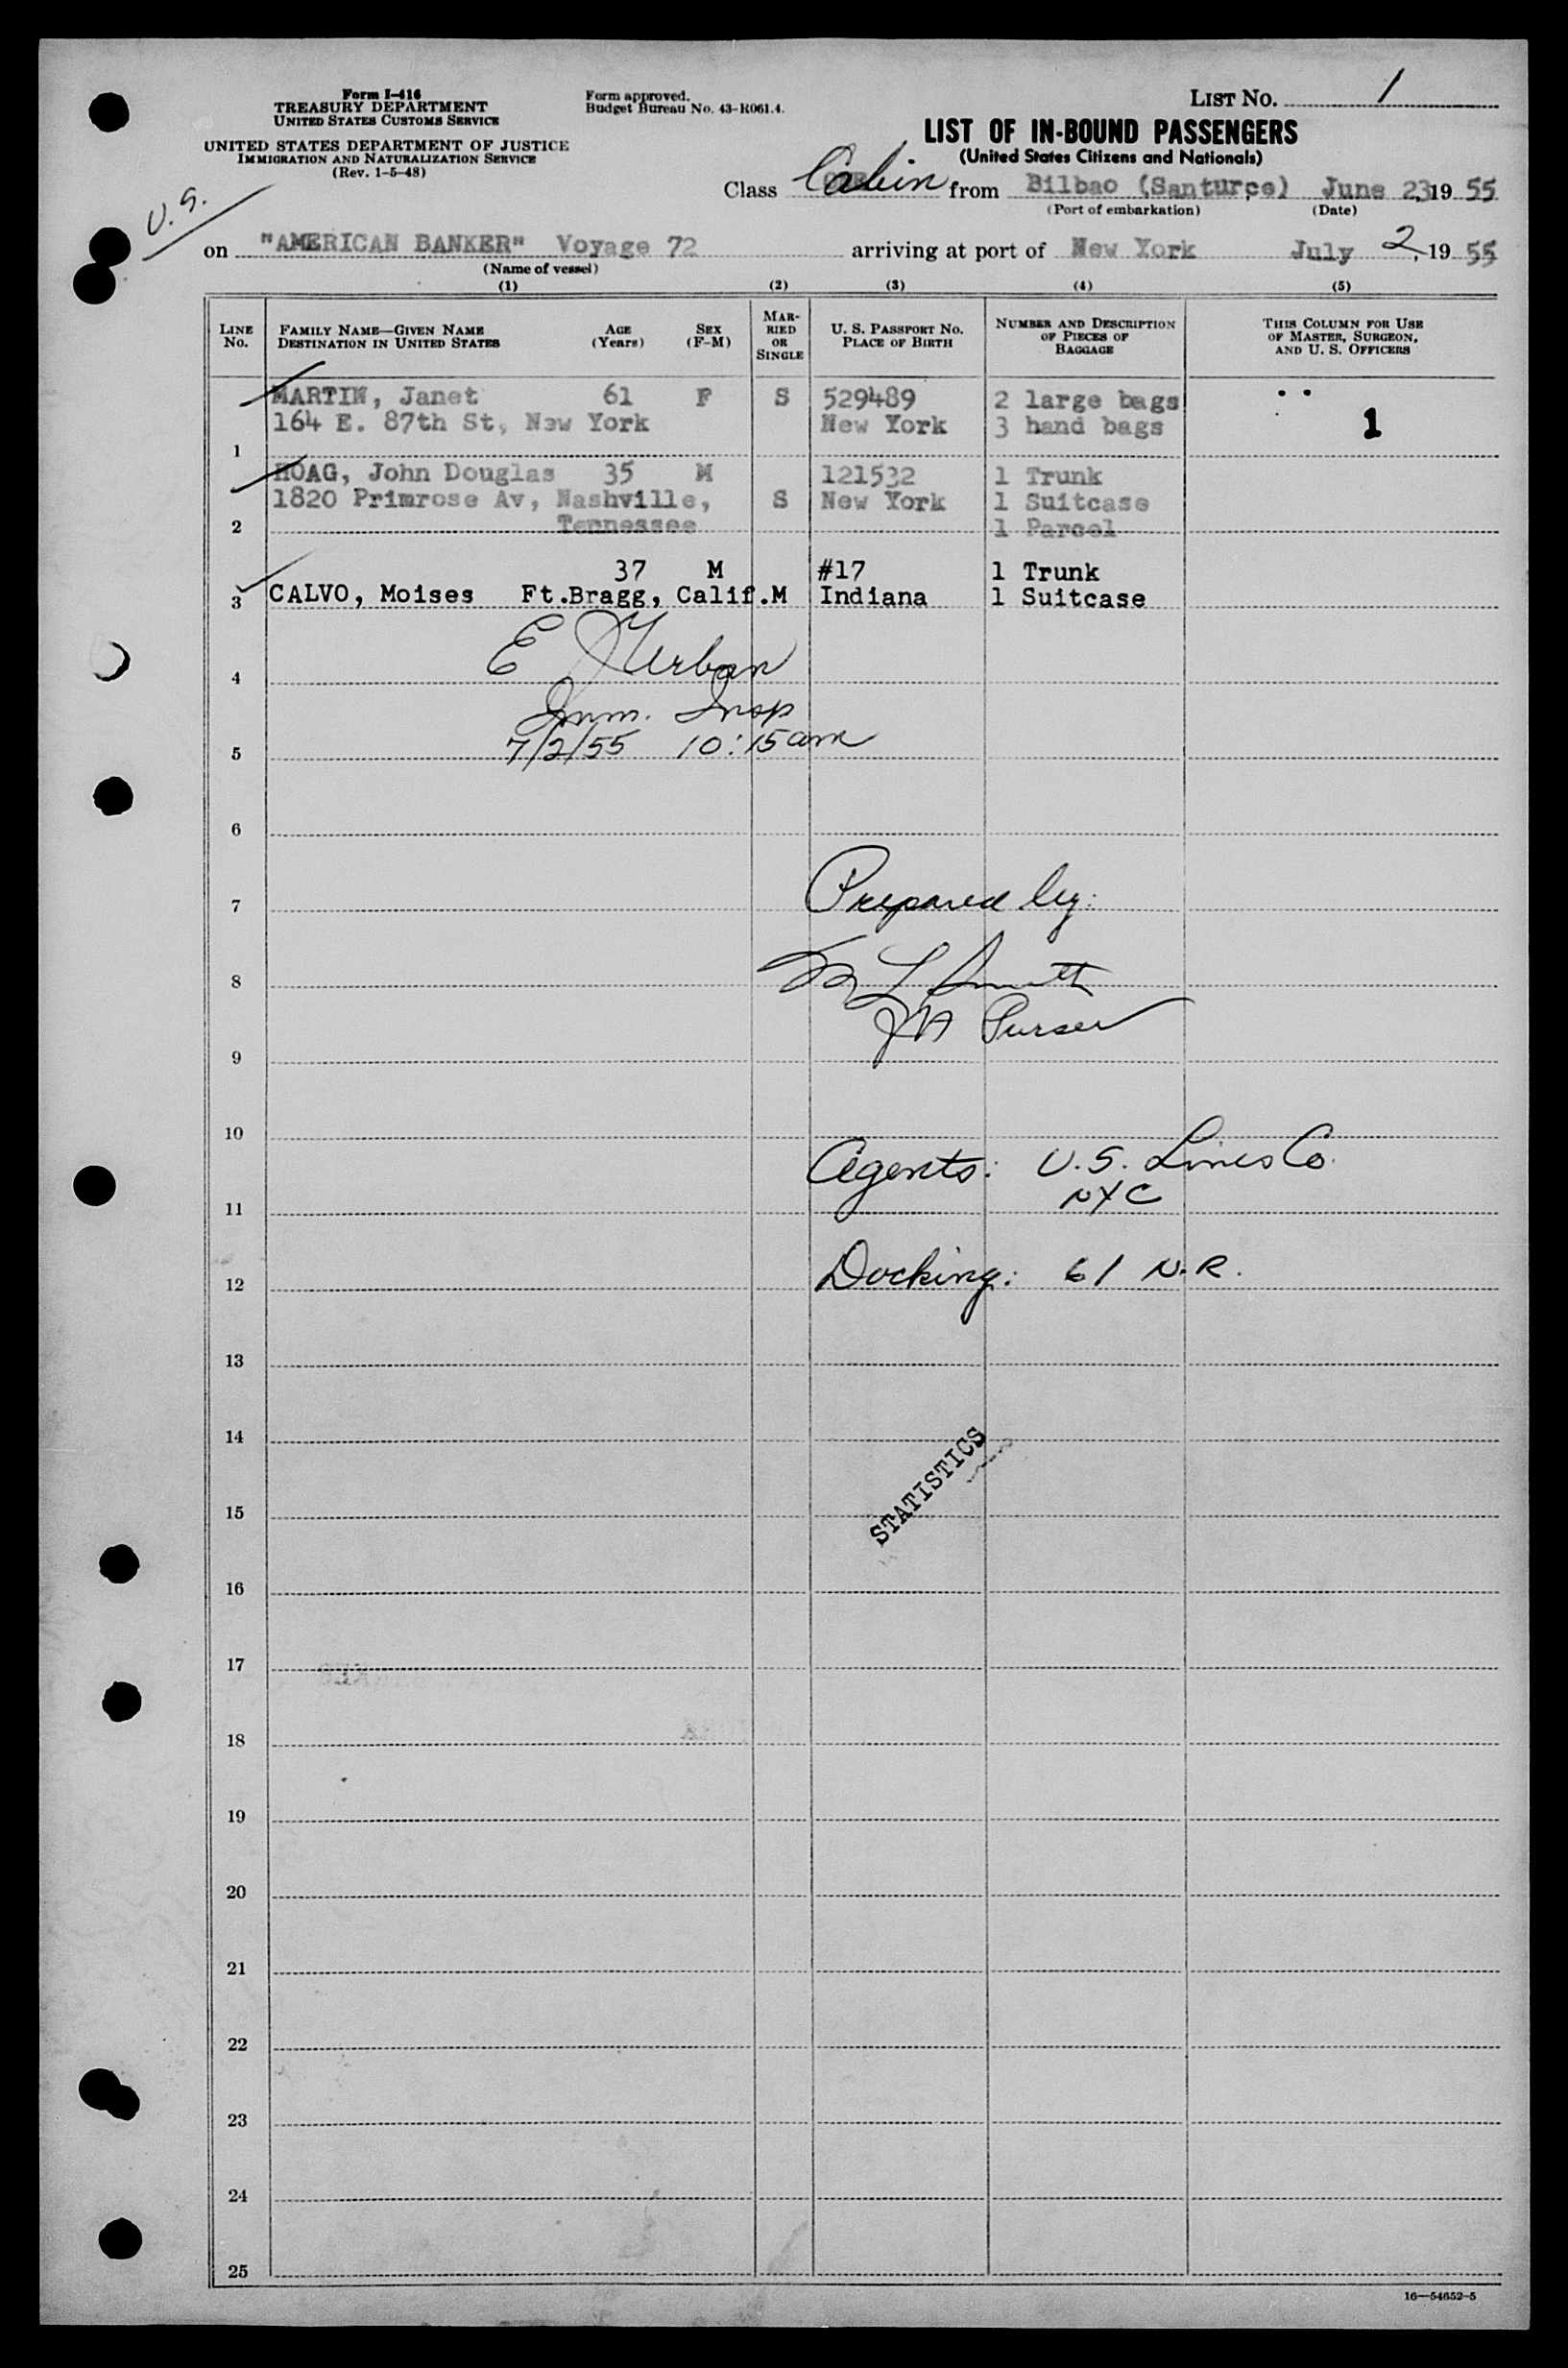 Form I-416
TREASURY DEPARTMENT
UNITED STATES CUSTOMS SERVICE
UNITED STATES DEPARTMENT OF JUSTICE
IMMIGRATION AND NATURALIZATION SERVICE
(Rev. 1-5-48)
Form approved.
Budget Bureau No. 43-R061.4.
LIST NO. 1
LIST OF IN-BOUND PASSENGERS
(United States Citizens and Nationals)
U.S.
Class Cabin from Bilbao (Santurce) June 23, 19 55
(Port of embarkation) (Date)
on "AMERICAN BANKER" Voyage 72 arriving at port of New York July 2, 19 55
(Name of vessel)
(1) (2) (3) (4) (5)
LINE NO.
FAMILY NAME—GIVEN NAME
DESTINATION IN UNITED STATES
AGE (Years)
SEX (F-M)
MARRIED OR SINGLE
U. S. PASSPORT NO.
PLACE OF BIRTH
NUMBER AND DESCRIPTION OF PIECES OF BAGGAGE
THIS COLUMN FOR USE OF MASTER, SURGEON, AND U. S. OFFICERS
MARTIN, Janet 61 F S 529489 2 large bags
164 E. 87th St, New York New York 3 hand bags 1
1
HOAG, John Douglas 35 M 121532 1 Trunk
1820 Primrose Av, Nashville, S New York 1 Suitcase
2 Tennessee 1 Parcel
37 M #17 1 Trunk
3 CALVO, Moises Ft.Bragg, Calif.M Indiana 1 Suitcase
E J Urban
4
Imm. Insp
7/2/55 10:15am
5
6
Prepared by:
7
Smith
8
Purser
9
10
Agents: U.S. Lines Co.
NYC
11
Docking: 61 N.R.
12
13
14
STATISTICS
15
16
17
18
19
20
21
22
23
24
25
16—54652-5